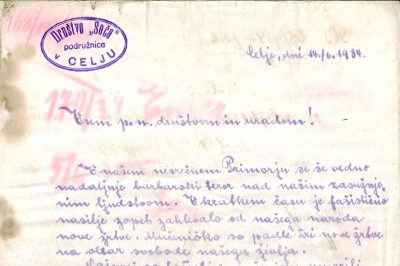 168/
Društvo "Soča"
podružnica
v CELJU
Celje, dné 14./6. 1934.
170/34
Vsem p. n. društvom in uradom!
V našem nesrečnem Primorju se še vedno
nadaljuje barbarski teror nad našim zasužnje
nim ljudstvom. V kratkem času je fašistično
nasilje zopet zahtevalo od našega naroda
nove žrtve. Mučeniško so padle tri nove žrtve
na oltar svobode našega življa.